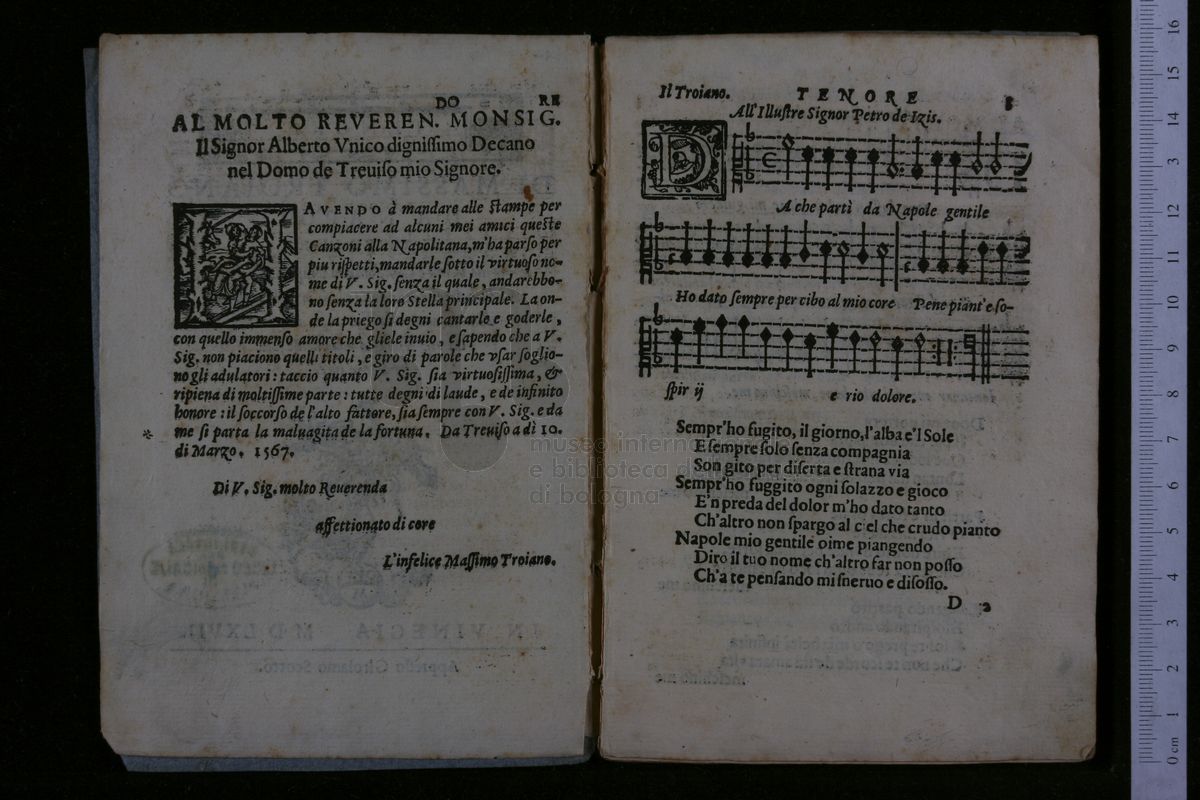 DO RE
AL MOLTO REVEREN. MONSIG.
Il Signor Alberto Vnico dignissimo Decano
nel Domo de Treuiso mio Signore.
AVENDO à mandare alle stampe per
compiacere ad alcuni mei amici queste
Canzoni alla Napolitana, m'ha parso per
piu rispetti, mandarle sotto il virtuoso no-
me di V. Sig. senza il quale, andarebbo-
no senza la loro Stella principale. La on-
de la priego si degni cantarle e goderle,
con quello immenso amore che gliele inuio, e sapendo che a V.
Sig. non piaciono quelli titoli, e giro di parole che vsar soglio-
no gli adulatori: taccio quanto V. Sig. sia virtuosissima, &
ripiena di moltissime parte: tutte degni di laude, e de infinito
honore: il soccorso de l'alto fattore, sia sempre con V. Sig. e da
me si parta la maluagita de la fortuna. Da Treuiso a dì 10.
di Marzo. 1567.
Di V. Sig. molto Reuerenda
affettionato di core
L'infelice Massimo Troiano.
Il Troiano. TENORE 8
All' Illustre Signor Petro de Izis.
D
A che partì da Napole gentile
Ho dato sempre per cibo al mio core Pene piant'e so-
spir ij e rio dolore.
Sempr'ho fugito, il giorno, l'alba e'l Sole
E sempre solo senza compagnia
Son gito per diserta e strana via
Sempr'ho fuggito ogni solazzo e gioco
E'n preda del dolor m'ho dato tanto
Ch'altro non spargo al ciel che crudo pianto
Napole mio gentile oime piangendo
Diro il tuo nome ch'altro far non posso
Ch'a te pensando mi sneruo e disosso.
D 2
museo interna
e biblioteca d
di bologna
IN VINEGIA MDLXVII
Appresso Girolamo Scotto.
0 cm 1 2 3 4 5 6 7 8 9 10 11 12 13 14 15 16